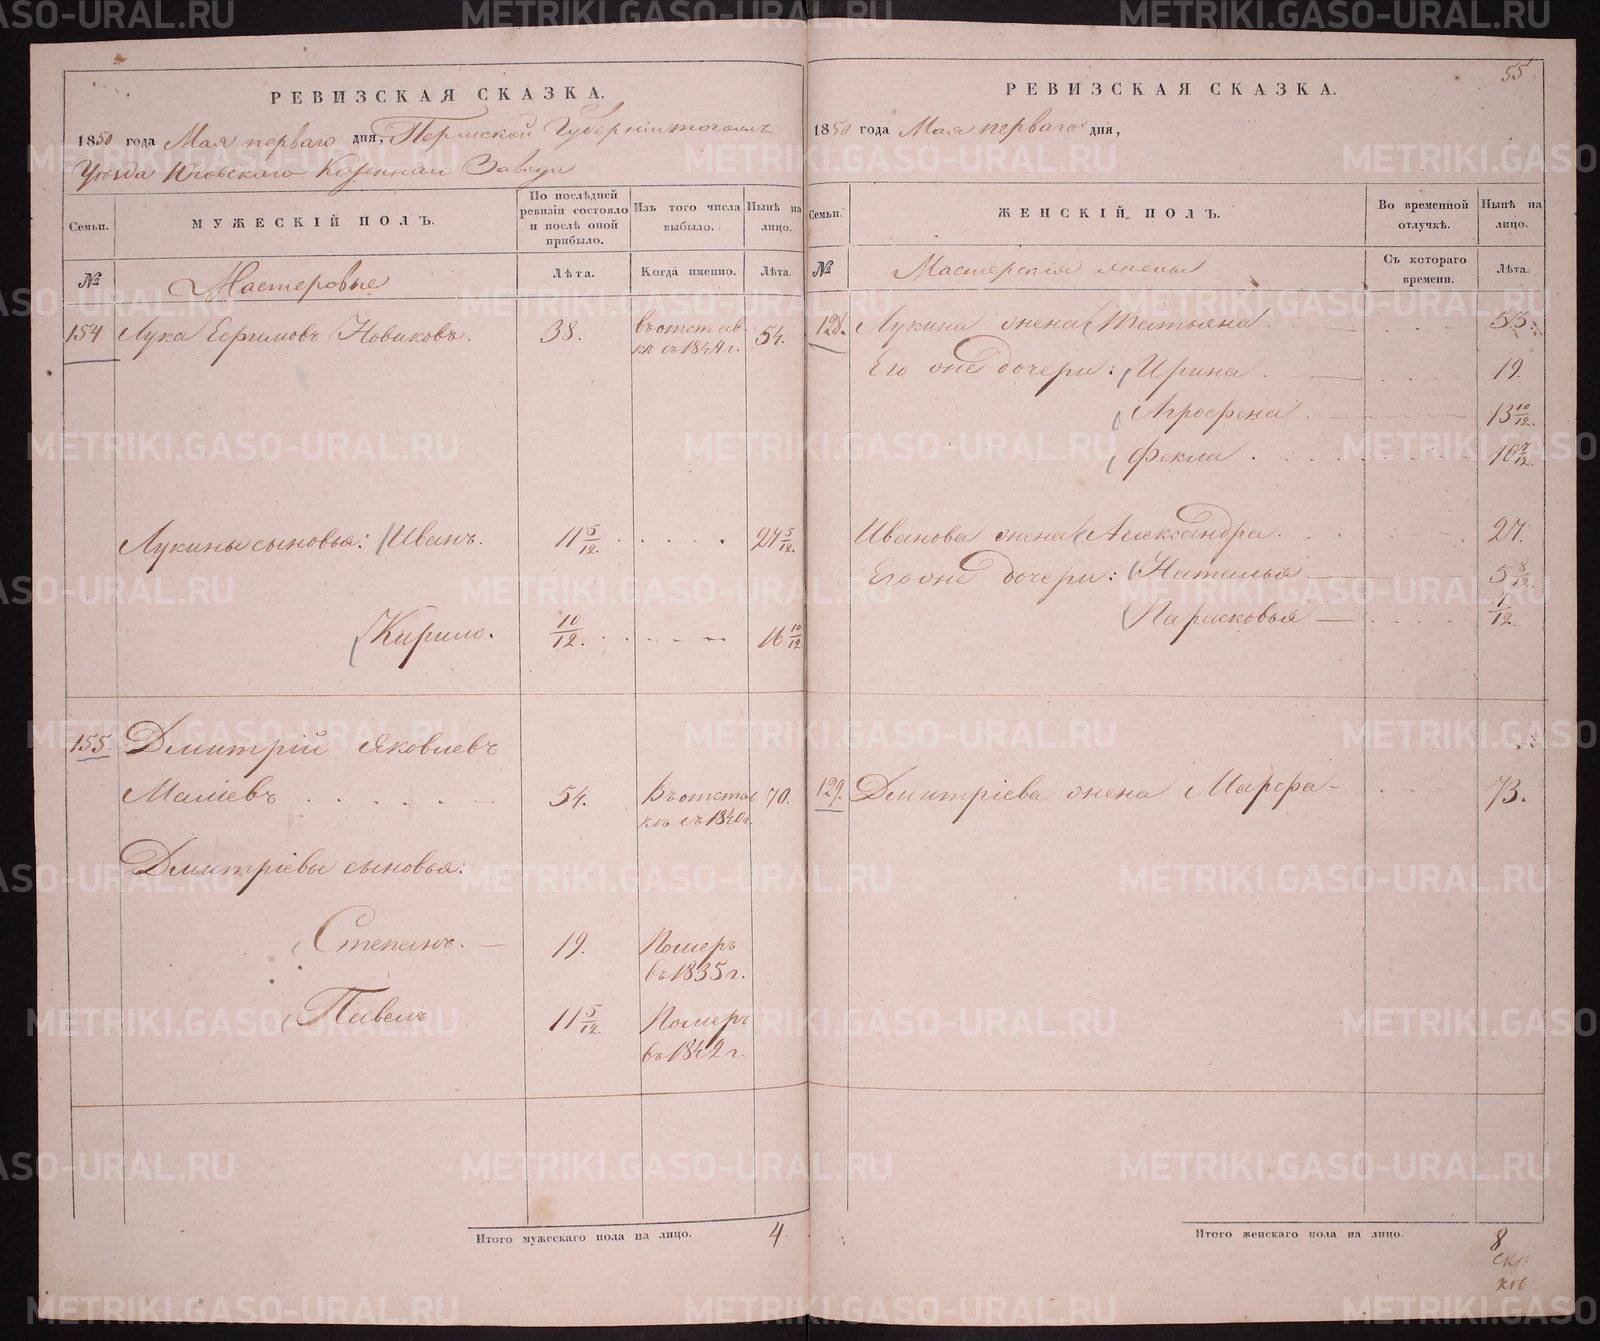 РЕВИЗСКАЯ СКАЗКА.
1850 года Мая перваго дня, Пермской Губерніи тогожъ
Уѣзда Юговскаго Казеннаго Завода
Семьи.
МУЖЕСКІЙ ПОЛЪ.
По послѣдней ревизіи состояло и послѣ оной прибыло.
Изъ того числа выбыло.
Нынѣ на лицо.
№
Мастеровые
Лѣта.
Когда именно.
Лѣта.
154 Лука Ефимовъ Новиковъ. 38. въ отстав- 54.
кѣ съ 1844 г.
Лукины сыновья: Иванъ. 11 5/12. 27 5/12.
Кирило. 10/12. 16 10/12
155. Дмитрій Яковлевъ
Маліевъ 54. Въ отстав 70.
кѣ съ 1840 г.
Дмитріевы сыновья:
Степанъ. 19. Померъ
въ 1835 г.
Павелъ 11 5/12 Померъ
въ 1842 г.
Итого мужескаго пола на лицо. 4.
55
РЕВИЗСКАЯ СКАЗКА.
1850 года Мая перваго дня,
Семьи.
ЖЕНСКІЙ ПОЛЪ.
Во временной отлучкѣ.
Нынѣ на лицо.
№
Мастерскія жены
Съ котораго времени.
Лѣта.
128. Лукина жена Татьяна. 53.
Его же дочери: Ирина. 19.
Агрофена. 13 10/12.
Фекла. 10 7/12.
Иванова жена Александра. 27.
Его же дочери: Наталья 5 8/12.
Парасковья 7/12.
129. Дмитріева жена Марфа 73.
Итого женскаго пола на лицо. 8
METRIKI.GASO-URAL.RU